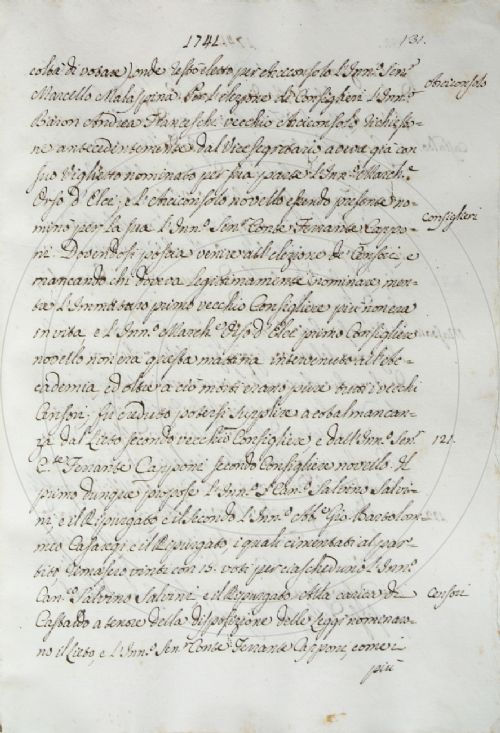 1741.
131.
coltà di votare) onde restò eletto per Arciconsolo l'Inn.º Sen.e
Arciconsolo
Marcello Malaspina. Per l'elezione de Consiglieri l'Inn.º
Baron Andrea Franceschi vecchio Arciconsolo richiesto-
ne antecedentemente dal Vicesegretario aveva già con
suo Viglietto nominato per sua parte l'Inn.º March.e
Orso d'Elci; e l'Arciconsolo novello essendo presente no-
Consiglieri
minò per la sua l'Inn.º Sen.e Conte Ferrante Cappo-
ni. Dovendosi poscia venire all'elezione de' Censori, e
mancando chi doveva legittimamente nominare, men-
tre l'Innominato primo vecchio Consigliere più non era
in vita e l'Inn.º March.e Orso d'Elci primo Consigliere
novello non era questa mattina intervenuto all'Ac-
cademia, ed oltre a ciò morti erano pure tutti i vecchi
Censori; fu creduto potersi supplire a cotal mancan-
za dal Lieto secondo vecchio Consigliere e dall'Inn.º Sen.e
121.
C.te Ferrante Capponi secondo Consigliere novello. Il
primo dunque propose l'Inn.º S.r Can.º Salvino Salvi-
ni, e il Ripurgato e il secondo l'Inn.º Ab.e Gio Bartolom-
meo Casaregi e il Ripurgato, i quali cimentati al par-
tito rimasero vinti con 15. voti per ciascheduno l'Inn.º
Can.º Salvino Salvini e il Ripurgato. Alla carica di
Censori
Castaldo a tenore della disposizione delle Leggi nomenaro-
no il Lieto, e l'Inn.º Sen.e Conte Ferrante Capponi, come i
più